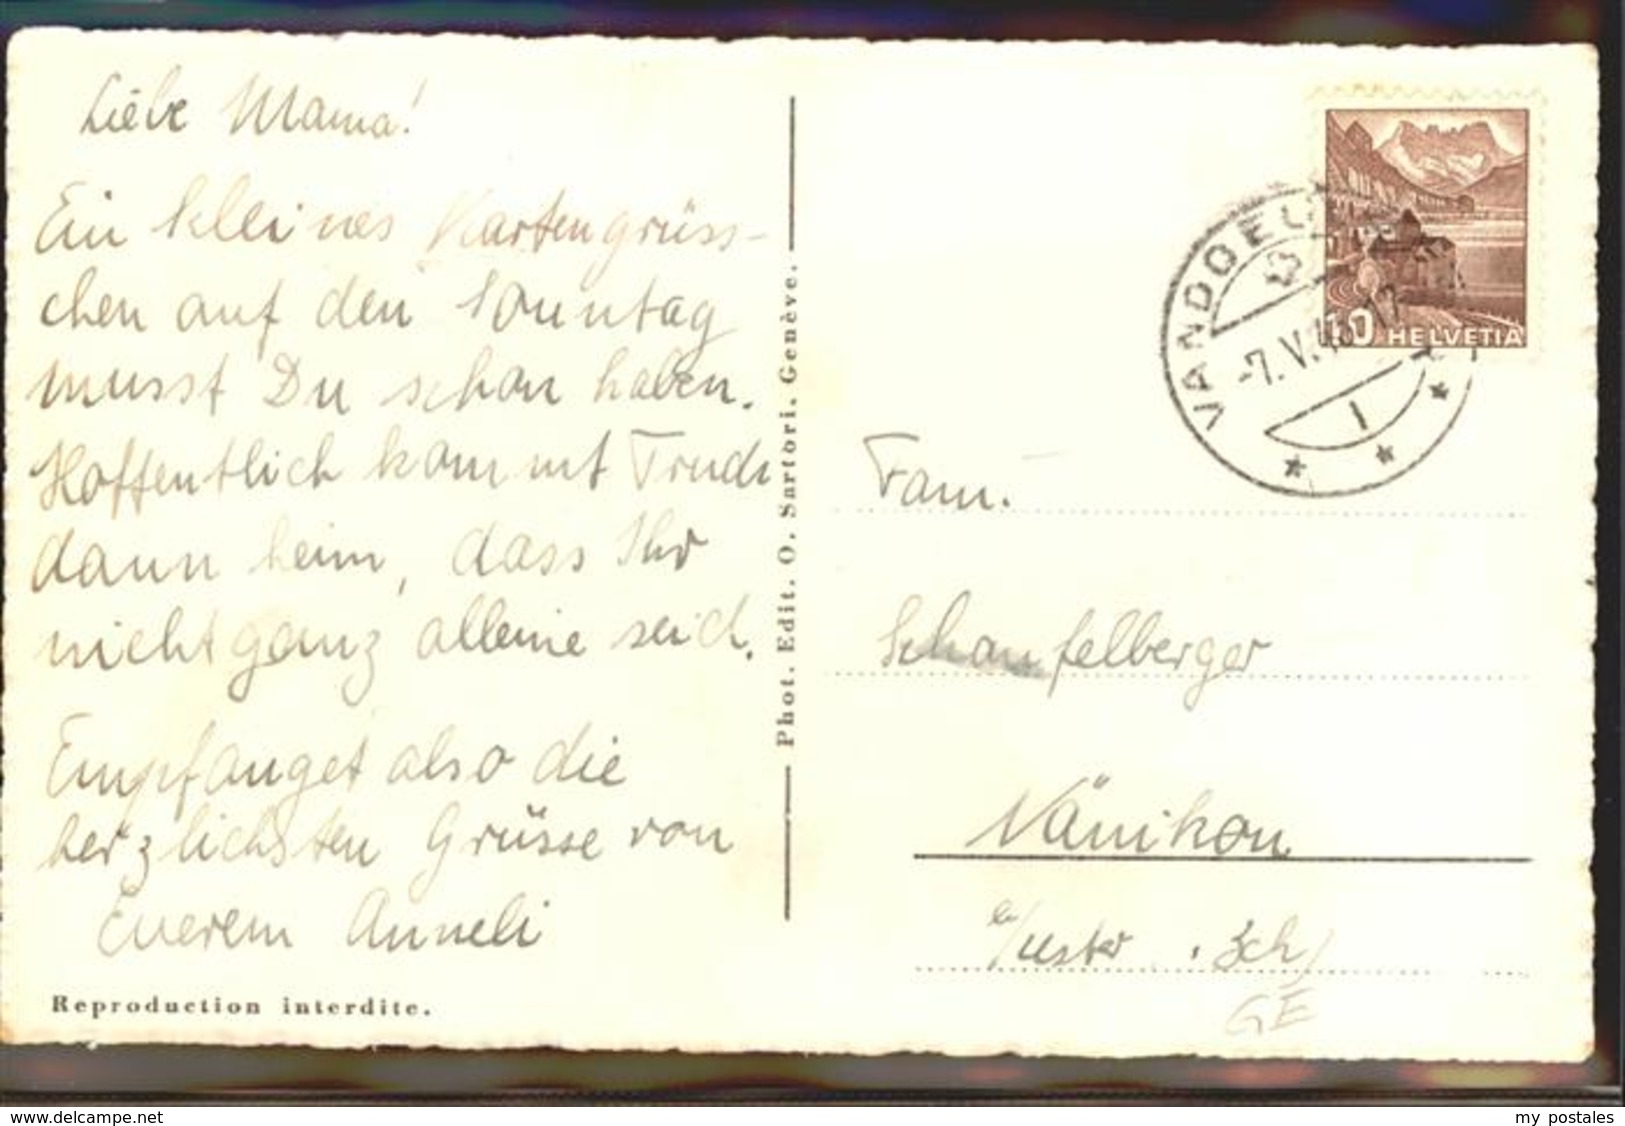 Liebe Mama!
Ein kleines Kartengrüss-
chen auf den Sonntag
musst Du schon haben.
Hoffentlich kommt Trudi
dann heim, dass Ihr
nicht ganz alleine seid.
Empfanget also die
herzlichsten Grüsse von
Euerem Anneli
Reproduction interdite.
Phot. Edit. O. Sartori. Genève.
HELVETIA
10
VANDOEU
-7. V. 4
17
1
Fam.
Schaufelberger
Nänikon
b/Uster. Zch/
GE
www.delcampe.net
my postales